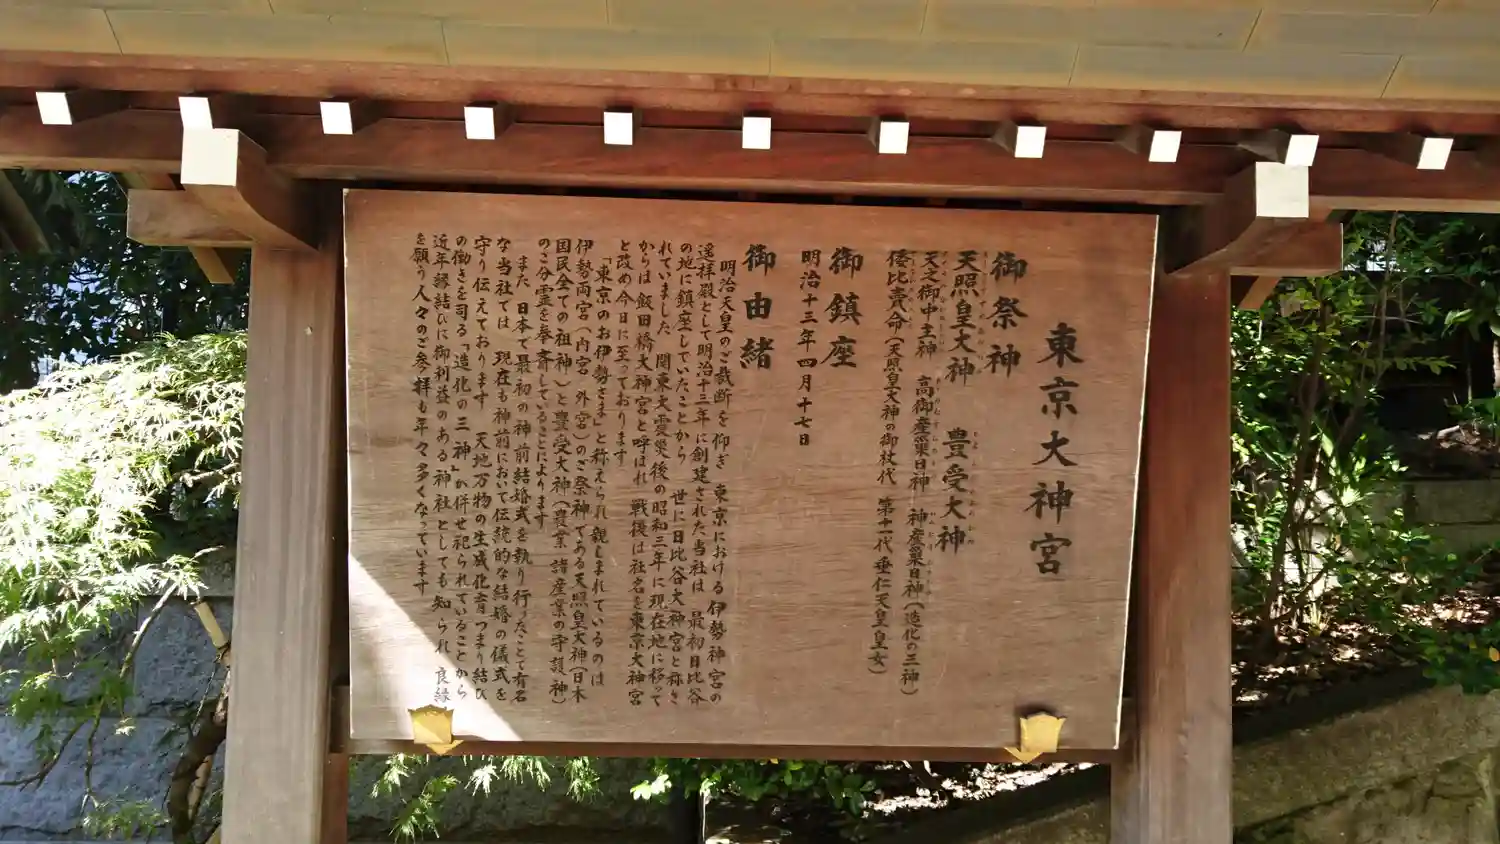 東京大神宮
御祭神
天照皇大神　豊受大神
天之御中主神　高御産巣日神　神産巣日神（造化の三神）
倭比賣命（天照皇大神の御杖代　第十一代垂仁天皇皇女）
御鎮座
明治十三年四月十七日
御由緒
明治天皇のご裁断を仰ぎ　東京における伊勢神宮の
遥拝殿として明治十三年に創建された当社は　最初日比谷
の地に鎮座していたことから　世に日比谷大神宮と称さ
れていました　関東大震災後の昭和三年に現在地に移って
からは　飯田橋大神宮と呼ばれ　戦後は社名を東京大神宮
と改め今日に至っております
「東京のお伊勢さま」と称えられ親しまれているのは
伊勢両宮（内宮　外宮）のご祭神である天照皇大神（日本
国民全ての祖神）と豊受大神（農業　諸産業の守護神）
のご分霊を奉斎していることによります
また　日本で最初の神前結婚式を執り行ったことで有名
な当社では　現在も神前において伝統的な結婚の儀式を
守り伝えております　天地万物の生成化育つまり結び
の働きを司る「造化の三神」が併せ祀られていることから
近年縁結びに御利益のある神社としても知られ　良縁
を願う人々のご参拝も年々多くなっています